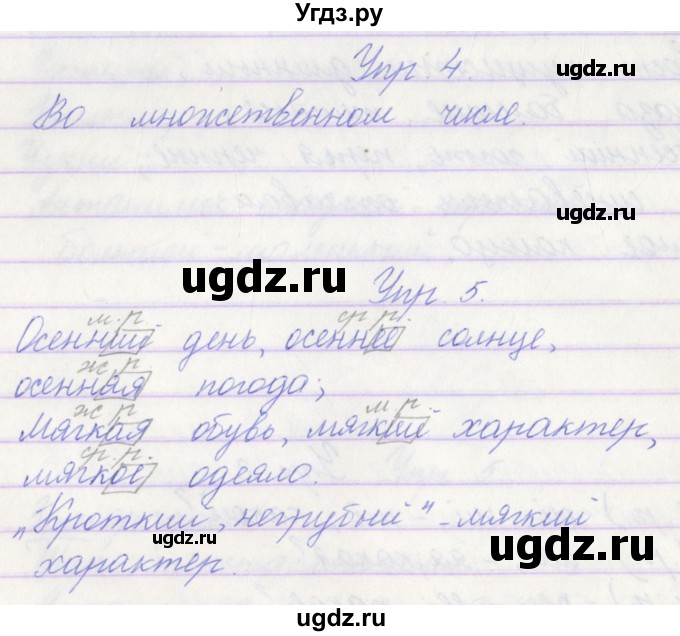 Угдз.ру
Упр. 4.
ugdz.ru
Во множественном числе.
ugdz.ru
ugdz.ru
Упр. 5.
м.р. ср.р.
Осенний день, осеннее солнце,
ж.р.
осенняя погода;
ж.р. м.р.
Мягкая обувь, мягкий характер,
ср.р.
мягкое одеяло.
„Кроткий, негрубый" - мягкий
ugdz.ru
ugdz.ru
характер.
ugdz.ru